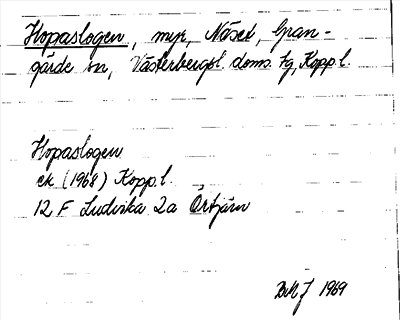 Hopaslogen, myr, Näset, Gran-
gärde sn, Västerbergsl. doms. fg, Kopp.l.
Hopaslogen
ek (1968) Kopp.l.
12 F Ludvika 2a Örtjärn
BMJ 1969